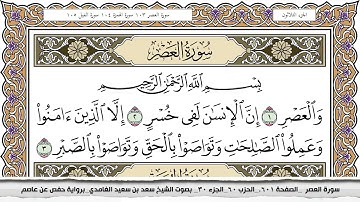 الجزء الثلاثون
سورة العصر ١٠٣ سورة الهمزة ١٠٤ سورة الفيل ١٠٥
سُورَةُ العَصْرِ
بِسْمِ اللَّهِ الرَّحْمَٰنِ الرَّحِيمِ
وَالْعَصْرِ ۝١ إِنَّ الْإِنسَٰنَ لَفِى خُسْرٍ ۝٢ إِلَّا الَّذِينَ ءَامَنُوا۟
وَعَمِلُوا۟ الصَّٰلِحَٰتِ وَتَوَاصَوْا۟ بِالْحَقِّ وَتَوَاصَوْا۟ بِالصَّبْرِ ۝٣
سورة العصر _ الصفحة ٦٠١ _ الحزب ٦٠ _ الجزء ٣٠ _ بصوت الشيخ سعد بن سعيد الغامدي _ برواية حفص عن عاصم